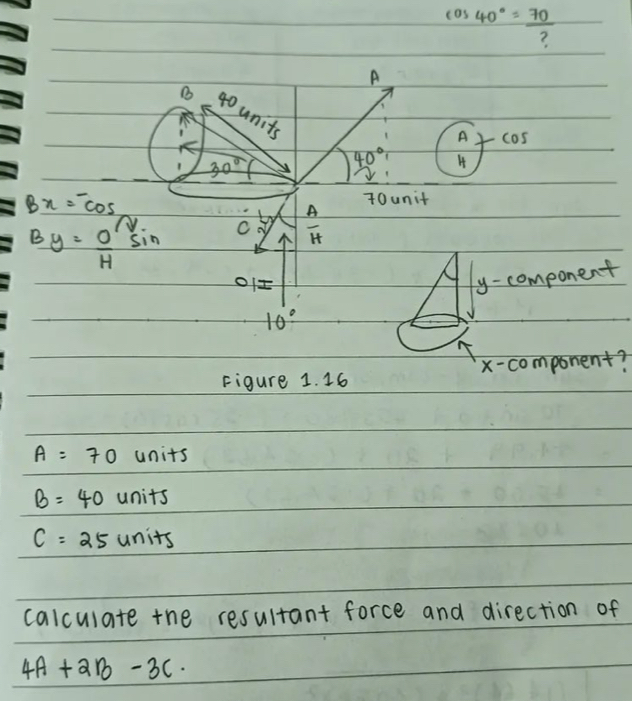 cos 40° = 70
?
A
B
40 units
A
H
cos
30°
40°
70 unit
Bx = -cos
C
25
A
H
By = O sin
H
O
H
y-component
10°
x-component?
Figure 1.16
A = 70 units
B = 40 units
C = 25 units
Calculate the resultant force and direction of
4A + 2B - 3C.